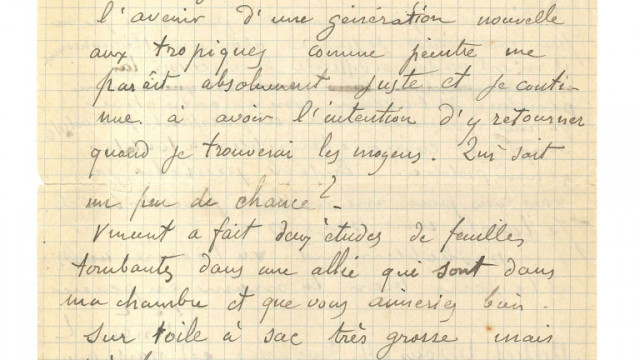 l'avenir d'une génération nouvelle
aux tropiques comme peintre me
parait absolument juste et je conti-
nue à avoir l'intention d'y retourner
quand je trouverai les moyens. Qui sait
un peu de chance? -
Vincent a fait deux études de feuilles
tombantes dans une allée qui sont dans
ma chambre et que vous aimeriez bien
sur toile à sac très grosse mais